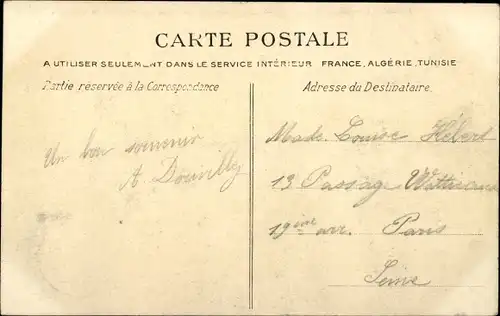 CARTE POSTALE
A UTILISER SEULEMENT DANS LE SERVICE INTÉRIEUR FRANCE, ALGÉRIE, TUNISIE
Partie réservée à la Correspondance
Adresse du Destinataire.
Un bon souvenir
A.
Made. Louise Hébert
13 Passage
19ème arr. Paris
Seine